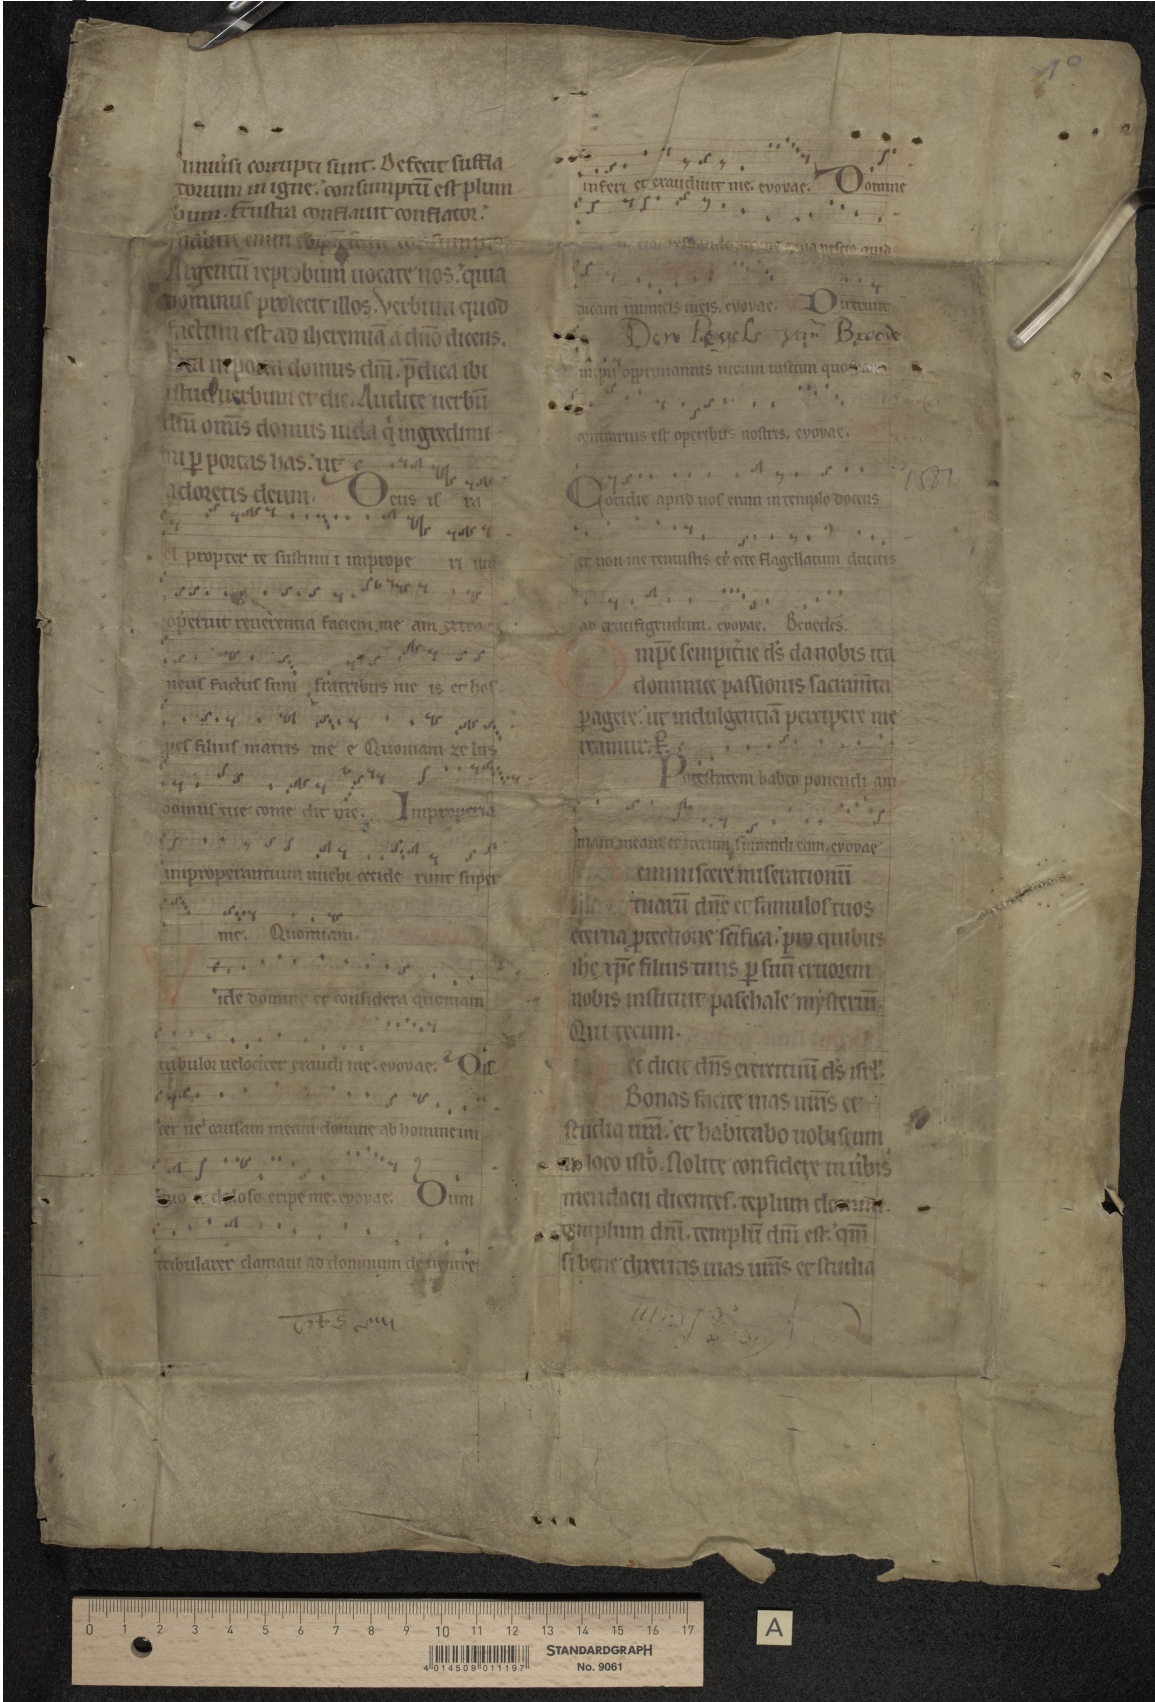 uniu͛si corrupti sunt. Defecit suffla
torium in igne. consumptū est plum
bum. frustra conflauit conflator.
Argentū reprobum uocate nos. quia
dominus proiecit illos. Verbum quod
factum est ad iheremiā a dn̄o dicens.
Sta in porta domus dn̄i. p̄dica ibi
istud uerbum et dic. Audite uerbū
dn̄i om̄s domus iuda q̍ ingredimi
ni ꝑ portas has. ut
adoretis deum. Deus is ra
el propter te sustinu i imprope ri um
operuit reuerentia faciem me am extra
neus factus sum fratribus me is et hos
pes filiis matris me e Quoniam ze lus
domus tue come dit me. Improperia
improperantium michi cecide runt super
me. Quoniam.
Vide domine et considera quoniam
tribulor uelociter exaudi me. evovae. Dis
cer ne causam meam domine ab homine ini
quo et doloso eripe me. evovae. Dum
tribularer clamaui ad dominum de uentre
inferi et exaudiuit me. evovae. Domine
dicam inimicis meis. evovae. Dixerunt
impii opprimamus uirum iustum quoniam
contrarius est operibus nostris. evovae.
1581
Cotidie apud uos eram in templo docens
et non me tenuistis et ecce flagellatum ducitis
ad crucifigendum. evovae. Benedcs̄.
Omp̄e sempit̍ne ds̄ da nobis ita
dominice passionis sacram̄ta
ꝑagere. ut indulgentiā percipere me
reamur. P.
Potestatem habeo ponendi ani
mam meam et iterum sumendi eam. evovae
eminiscere miserationū
tuarū dn̄e et famulos tuos
eterna ꝓtectione scīfica. pro quibus
ihc̄ xp̄c filius tuus ꝑ suū cruorem
nobis instituit paschale mysteriū.
Qui tecum.
ec dicit dn̄s exercituū ds̄ isrl̄.
Bonas facite uias ur̄as et
studia ur̄a. et habitabo uobiscum
in loco isto. Nolite confidere in u͛bis
mendacii dicentes. teplum domini.
templum dn̄i. templū dn̄i est. qm̄
si bene direxeritis uias ur̄as et studia
0 1 2 3 4 5 6 7 8 9 10 11 12 13 14 15 16 17
4 014509 011197
STANDARDGRAPH
No. 9061
A